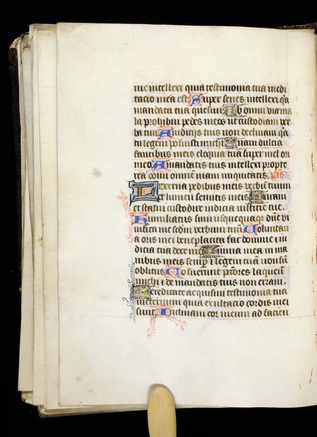 me intellexi quia testimonia tua medi
tacio mea est Super senes intellexi q̄a
mandata tua quesiui Ab omni via ma
la prohibui pedes meos ut custodiam ver
ba tua A iudiciis tuis non declinaui q̄a
tu legem posuisti michi Quam dulcia
faucibus meis eloquia tua super mel ori
meo A mandatis tuis intellexi propte
rea odiui omnem viam iniquitatis
Lucerna pedibus meis verbū tuum
et lumen semitis meis Iuraui
et statui custodire iudicia iusticie tue
Humiliatus sum usquequaq̄ dn̄e vi
uifica me scd̄m verbum tuū Voluntari
a oris mei beneplacita fac domine et iu
dicia tua doce me Anima mea in ma
nibus meis semp̄ et legem tuā non sum
oblitus Posuerunt pctōres laqueū
michi et de mandatis tuis non erraui
Hereditate acquisiui testimonia tua
in eternum quia exultacio cordis mei
sunt Inclinaui cor meum ad facien